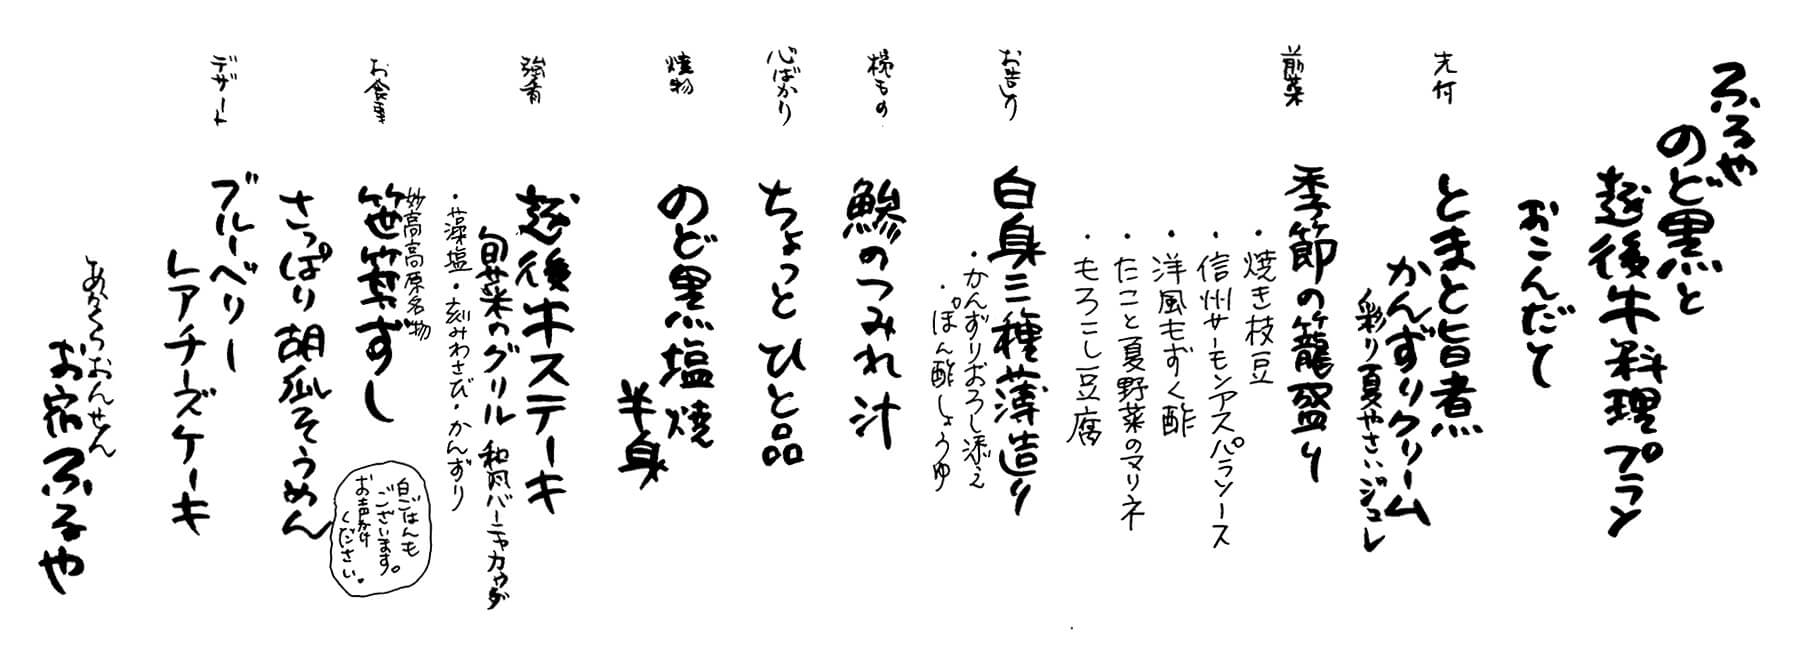 ふるや
のど黒と
越後牛料理プラン
おこんだて
先付
とまと旨煮
かんずりクリーム
彩り夏やさいジュレ
前菜
季節の籠盛り
・焼き枝豆
・信州サーモンアスパラソース
・洋風もずく酢
・たこと夏野菜のマリネ
・もろこし豆腐
お造り
白身三種薄造り
・かんずりおろし添え
・ぽん酢しょうゆ
椀もの
鯵のつみれ汁
心ばかり
ちょっとひと品
焼物
のど黒塩焼
半身
強肴
越後牛ステーキ
旬菜のグリル 和風バーニャカウダ
・藻塩・刻みわさび・かんずり
お食事
妙高高原名物
笹箕ずし
白ごはんも
ございます。
お声がけ
ください。
さっぱり胡瓜そうめん
デザート
ブルーベリー
レアチーズケーキ
あかくらおんせん
お宿ふるや